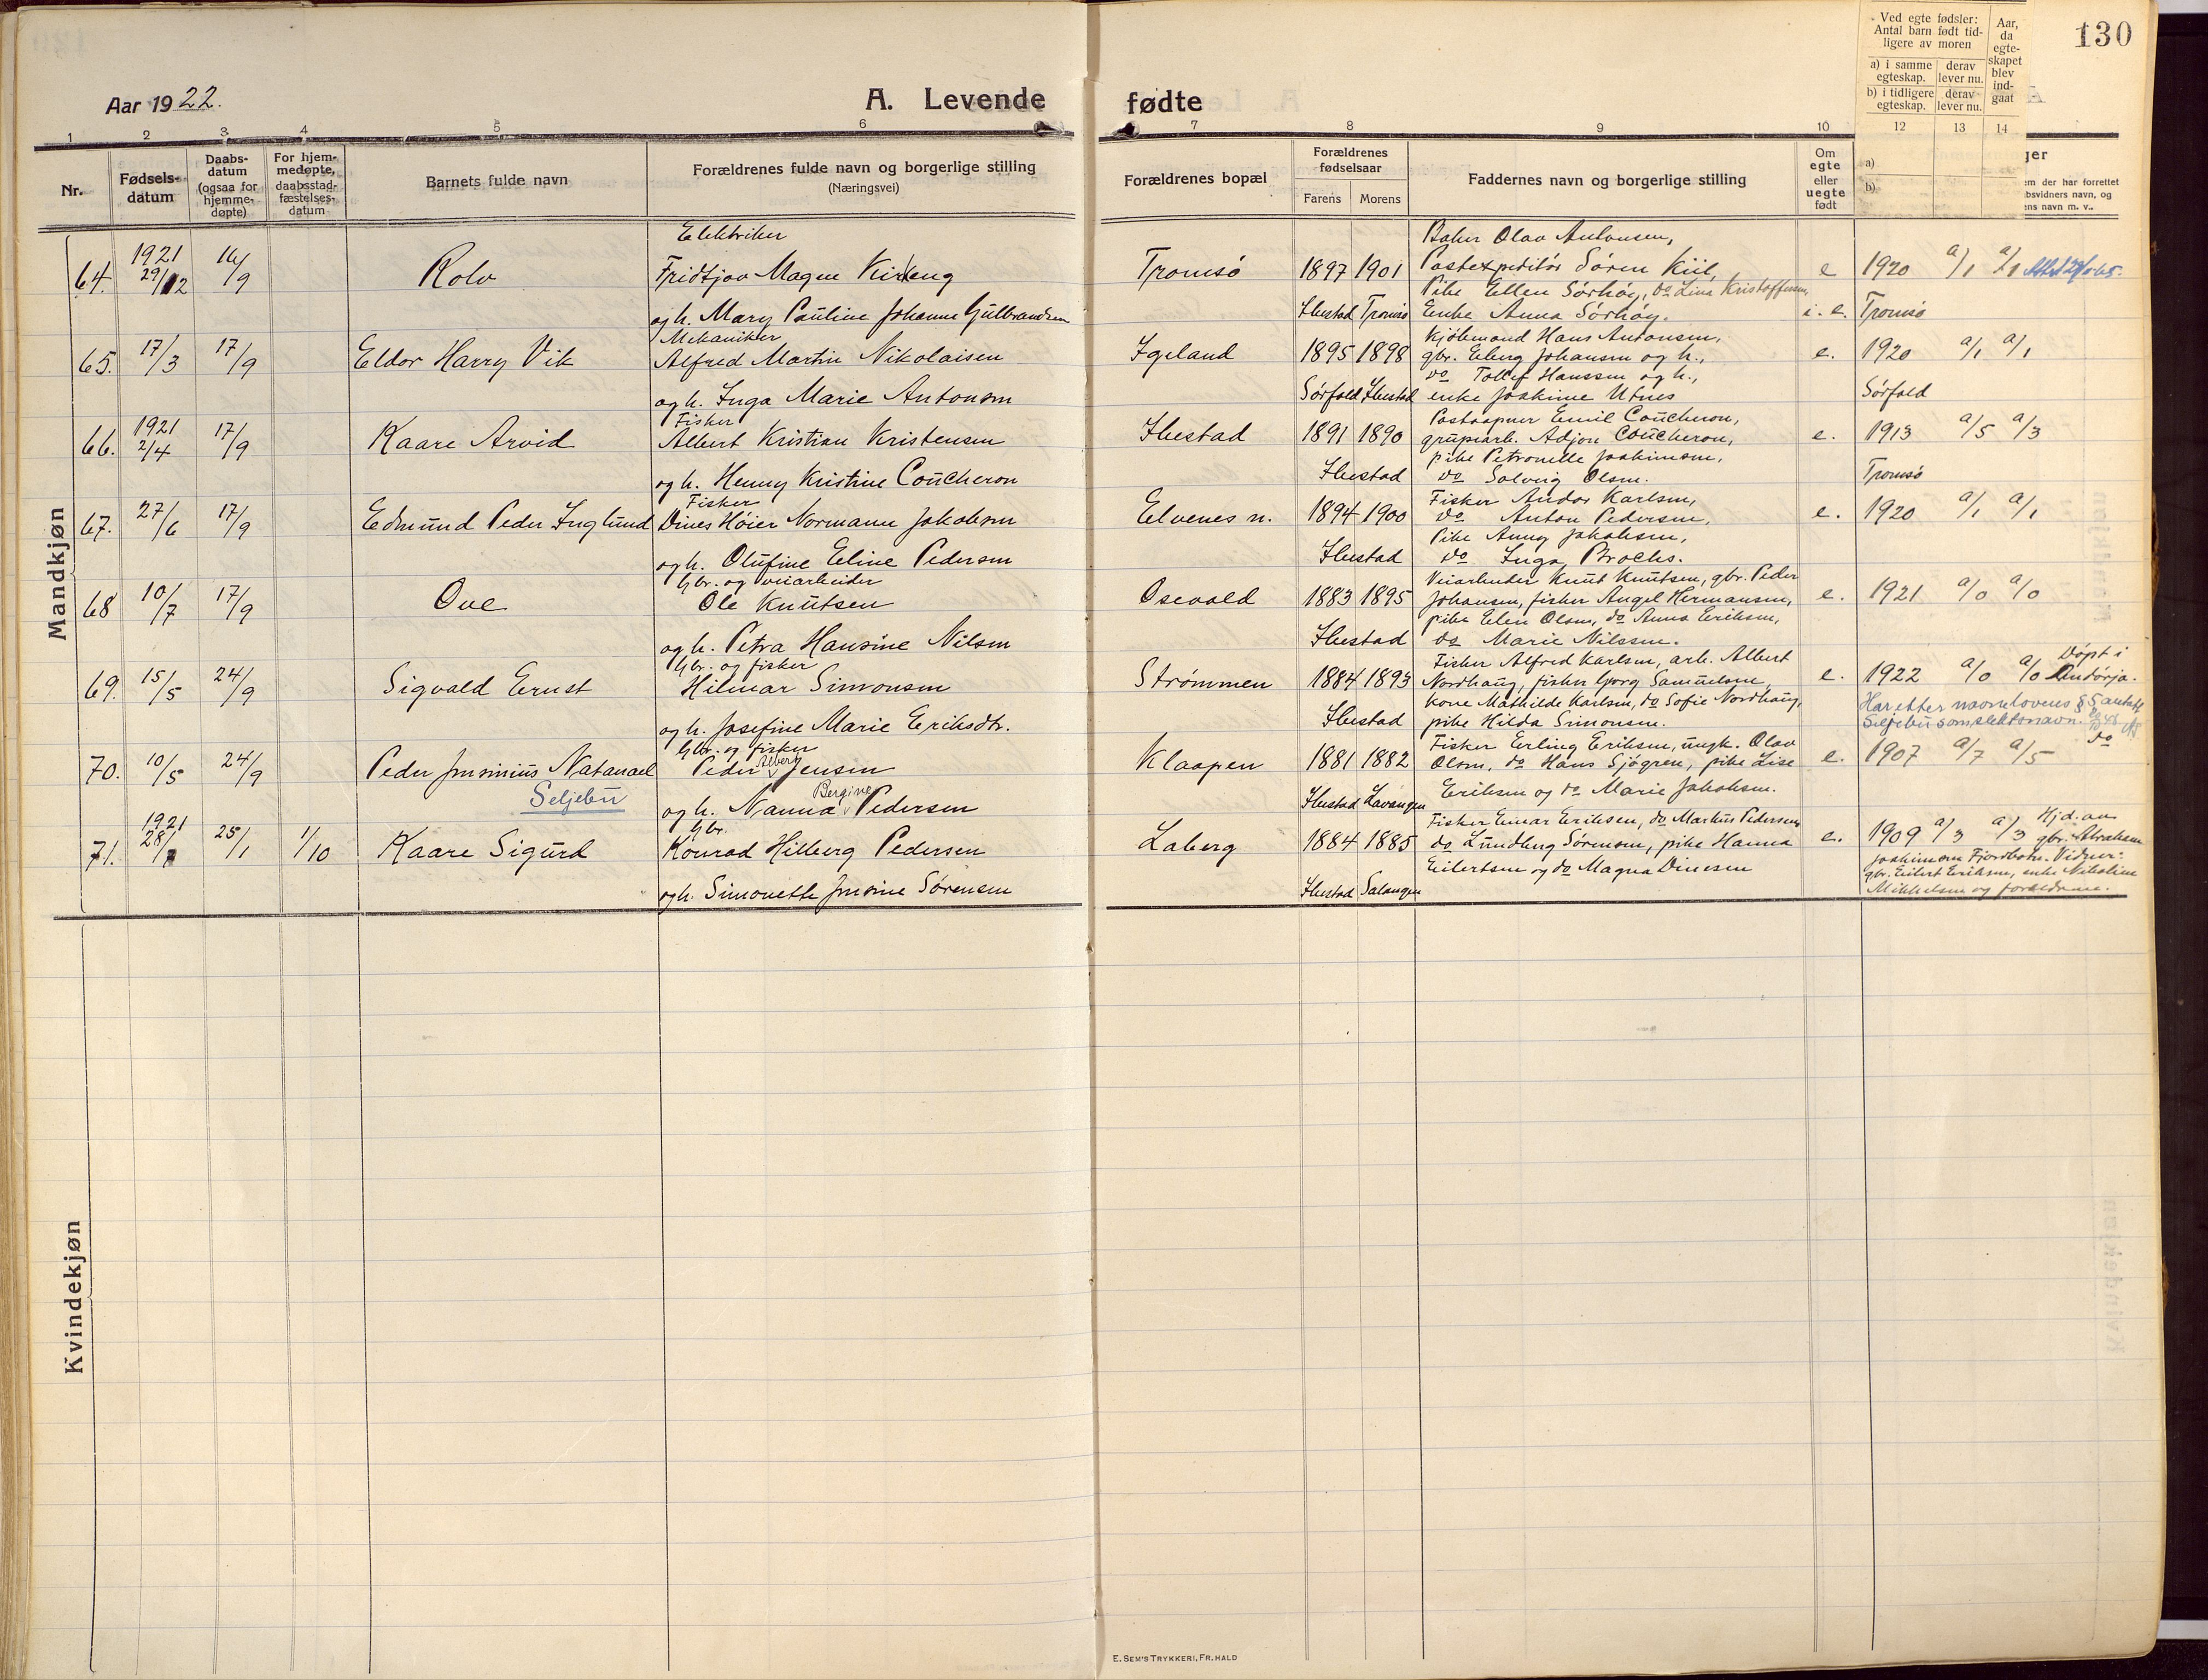 Aar 1922.
A. Levende
fødte
130
Ved egte fødsler:
Antal barn født tid-
ligere av moren
a) i samme egteskap.
derav lever nu.
b) i tidligere egteskap.
derav lever nu.
Aar, da egte-skapet blev ind-gaat
1 2 3 4 5 6 7 8 9 10 12 13 14
Nr.
Fødsels-datum
Daabs-datum (ogsaa for hjemme-døpte)
For hjem-medøpte, daabsstad-fæstelses-datum
Barnets fulde navn
Forældrenes fulde navn og borgerlige stilling
(Næringsvei)
Forældrenes bopæl
Forældrenes fødselsaar
Farens
Morens
Faddernes navn og borgerlige stilling
Om egte eller uegte født
a)
b)
ger
em der har forrettet
bsvidners navn, og
ens navn m. v..
Mandkjøn
64. 1921 29/12 16/9 Rolv
Elektriker
Fridtjov Magne Kirkeng
og h. Mary Pauline Johanne Gulbrandsen
Tromsø 1897 1901
Ibestad Tromsø
Baker Olav Antonsen,
Postexpeditør Søren Kiil,
Pike Ellen Sørhøy, do Lina Kristoffersen,
Enke Anna Sørhøy.
e 1920 a/1 a/1
i. e. Tromsø
65. 17/3 17/9 Eldor Harry Vik
Mekaniker
Alfred Martin Nikolaisen
og h. Inga Marie Antonsen
Igeland 1895 1898
Sørfold Ibestad
Kjøbmand Hans Antonsen,
gbr. Eberg Johansen og h.,
do Tollef Hanssen og h.,
enke Joakime Utnes
e. 1920 a/1 a/1
Sørfold
66. 1921 2/4 17/9 Kaare Arvid
Fisker
Albert Kristian Kristensen
og h. Henny Kristine Coucheron
Ibestad 1891 1890
Ibestad
Postaapner Emil Coucheron,
grubearb. Adjon Coucheron,
pike Petronelle Joakimsen,
do Solveig Olsen.
e. 1913 a/5 a/3
Tromsø
67. 27/6 17/9 Edmund Peder Inglund
Fisker
Dines Høier Normann Jakobsen
og h. Olufine Eline Pedersen
Elvenes n. 1894 1900
Ibestad
Fisker Andor Karlsen,
do Anton Pedersen,
Pike Anny Jakobsen,
do Inga Brochs.
e. 1920 a/1 a/1
68 10/7 17/9 Ove
Gbr. og veiarbeider
Ole Knutsen
og h. Petra Hansine Nilsen
Osevold 1883 1895
Ibestad
Veiarbeider Knut Knutsen, gbr. Peder
Johansen, fisker Angel Hermansen,
pike Elen Olsen, do Anna Eriksen,
do Marie Nilssen.
e. 1921 a/0 a/0
69. 15/5 24/9 Sigvald Ernst
Gbr. og fisker
Hilmar Simonsen
og h. Josefine Marie Eriksdtr.
Strømmen 1884 1893
Ibestad
Fisker Alfred Karlsen, arb. Albert
Nordhaug, fisker Georg Samuelsen,
kone Mathilde Karlsen, do Sofie Nordhaug,
pike Hilda Simonsen.
e. 1922 a/0 a/0 Døpt i
Andørja.
70. 10/5 24/9 Peder Jensinius Natanael
Seljebu
Gbr. og fisker
Peder Alberg Jensen
og h. Nanna Bergine Pedersen
Klaapen 1881 1882
Ibestad Lavangen
Fisker Erling Eriksen, ungk. Olav
Olsen, do Hans Sjøgren, pike Lise
Eriksen og do Marie Jakobsen.
Har etter navnelovens § 5 antatt
Seljebu som slektsnavn.
e. 1907 a/7 a/5 do
71. 1921 28/ 25/1 1/10 Kaare Sigurd
Gbr.
Konrad Hilberg Pedersen
og h. Simonette Jensine Sørensen
Laberg 1884 1885
Ibestad Salangen
Fisker Einar Eriksen, do Markus Pedersen,
do Lundberg Sørensen, pike Hanna
Eilertsen og do Magna Dinesen
e. 1909 a/3 a/3 Hjd. av
gbr. Abraham
Joakimsen Fjordbotn. Vidner:
gbr. Eilert Eriksen, enke Nikoline
Mikkelsen og forældrene.
Kvindekjøn
E. SEM'S TRYKKERI, FR.HALD